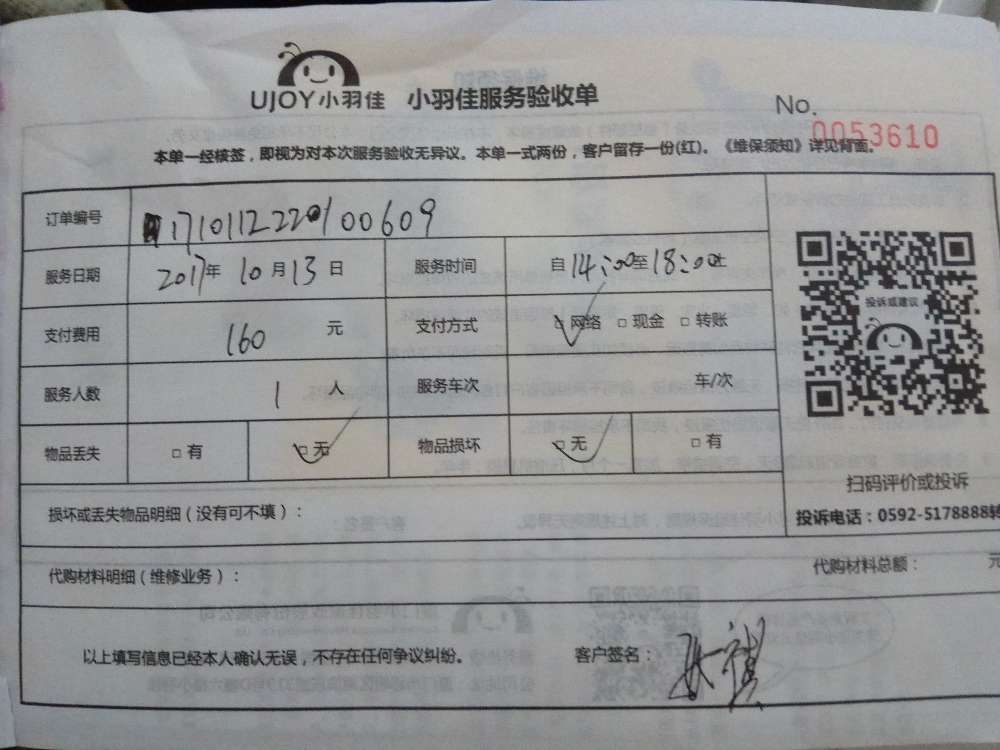 UJOY小羽佳 小羽佳服务验收单
No. 0053610
本单一经核签，即视为对本次服务验收无异议。本单一式两份，客户留存一份(红)。《维保须知》详见背面。
订单编号 1710112220100609
服务日期 2017年 10月13日 服务时间 自14:00至18:00止
支付费用 160 元 支付方式 □网络 □现金 □转账
投诉或建议
服务人数 1 人 服务车次 车/次
物品丢失 □有 □无 物品损坏 □无 □有
扫码评价或投诉
损坏或丢失物品明细（没有可不填）：
投诉电话：0592-5178888转
代购材料明细（维修业务）：
代购材料总额： 元
以上填写信息已经本人确认无误，不存在任何争议纠纷。 客户签名：